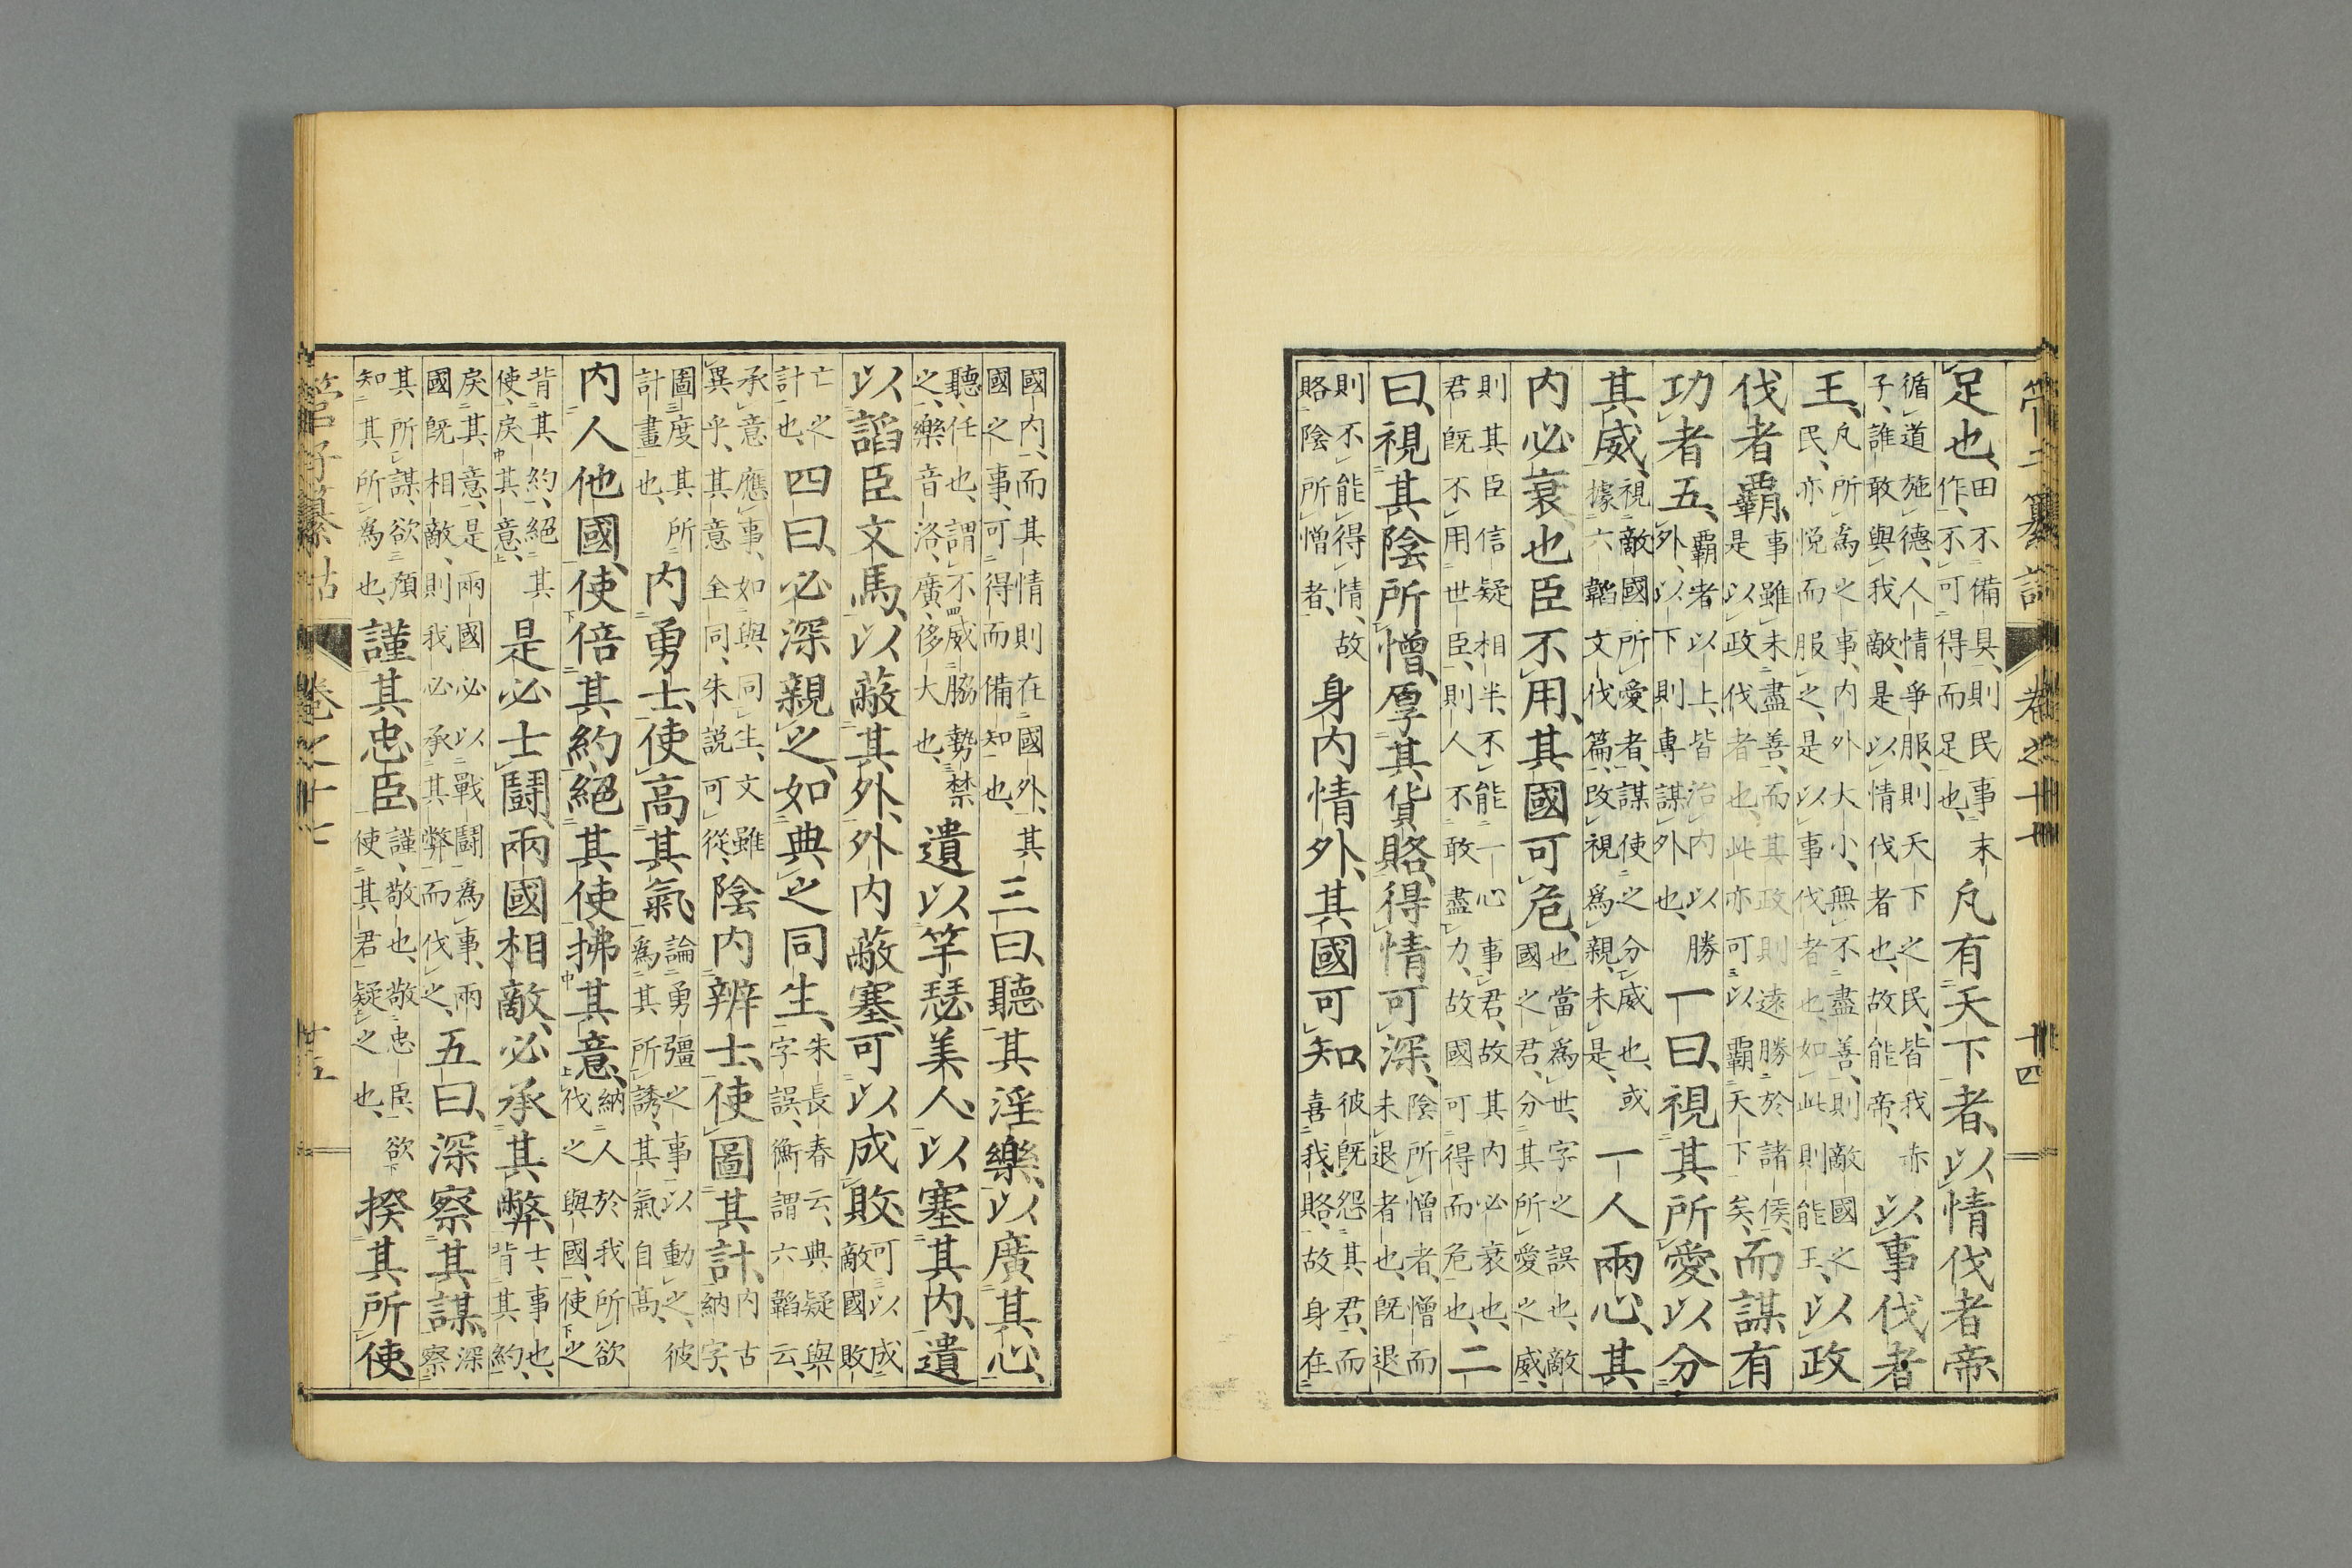 管子纂詁　卷之十七　十四
足也、田不備具、則民事末作、不可得而足也、凡有天下者、以情伐者帝
循道施德、人情爭服、則天下之民、皆我赤子、誰敢與我敵、是以情伐者也、故能帝、以事伐者
王、凡所為之事、内外大小、無不盡善、則敵國之民、亦悦而服之、是以事伐者也、如此則能王、以政
伐者霸、事雖未盡善、而其政則遠勝於諸侯、是以政伐者也、此亦可以霸天下矣、而謀有
功者五、霸者以上、皆治内以勝外、以下則專謀外也、一曰、視其所愛、以分
其威、視敵國所愛者、謀使之分威也、或據六韜文伐篇、改視為親、未是、一人兩心、其
内必衰也、臣不用、其國可危、也當為世、字之誤也、敵國之君、分其所愛之威、
則其臣信疑相半、不能一心事君、故其内必衰也、君既不用世臣、則人不敢盡力、故國可得而危也、二
曰、視其陰所憎、厚其貨賂、得情可深、陰所憎者、憎而未退者也、既退
則不能得情、故賂陰所憎者、身内情外、其國可知、彼既怨其君、而喜我賂、故身在
國内、而其情則在國外、其國之事、可得而備知也、三曰、聽其淫樂、以廣其心、
聽、任也、謂不威脇勢禁之、樂音洛、廣、侈大也、遺以竽瑟美人、以塞其内、遺
以諂臣文馬、以蔽其外、外内蔽塞、可以成敗、可以成敵國敗
亡之計也、四曰、必深親之、如典之同生、朱長春云、典疑與字誤、衡謂六韜云、
承意應事、如與同生、文雖異乎、其意全同、朱説可從、陰内辨士、使圖其計、内古納字、
圖度其所計畫也、内勇士、使高其氣、論勇彊之事、以動之、彼為其所誘、其氣自高、
内人他國、使倍其約、絕其使、拂其意、納人於我所欲伐之與國、使之
背其約、絕其使、戾其意、是必士鬭、兩國相敵、必承其弊、士、事也、背其約、
戾其意、是兩國必以戰鬭為事、兩國既相敵、則我必承其弊而伐之、五曰、深察其謀、深察
其所謀、欲預知其所為也、謹其忠臣、謹、敬也、敬忠臣、欲使其君疑之也、揆其所使、
管子纂詁　卷之十七　十五